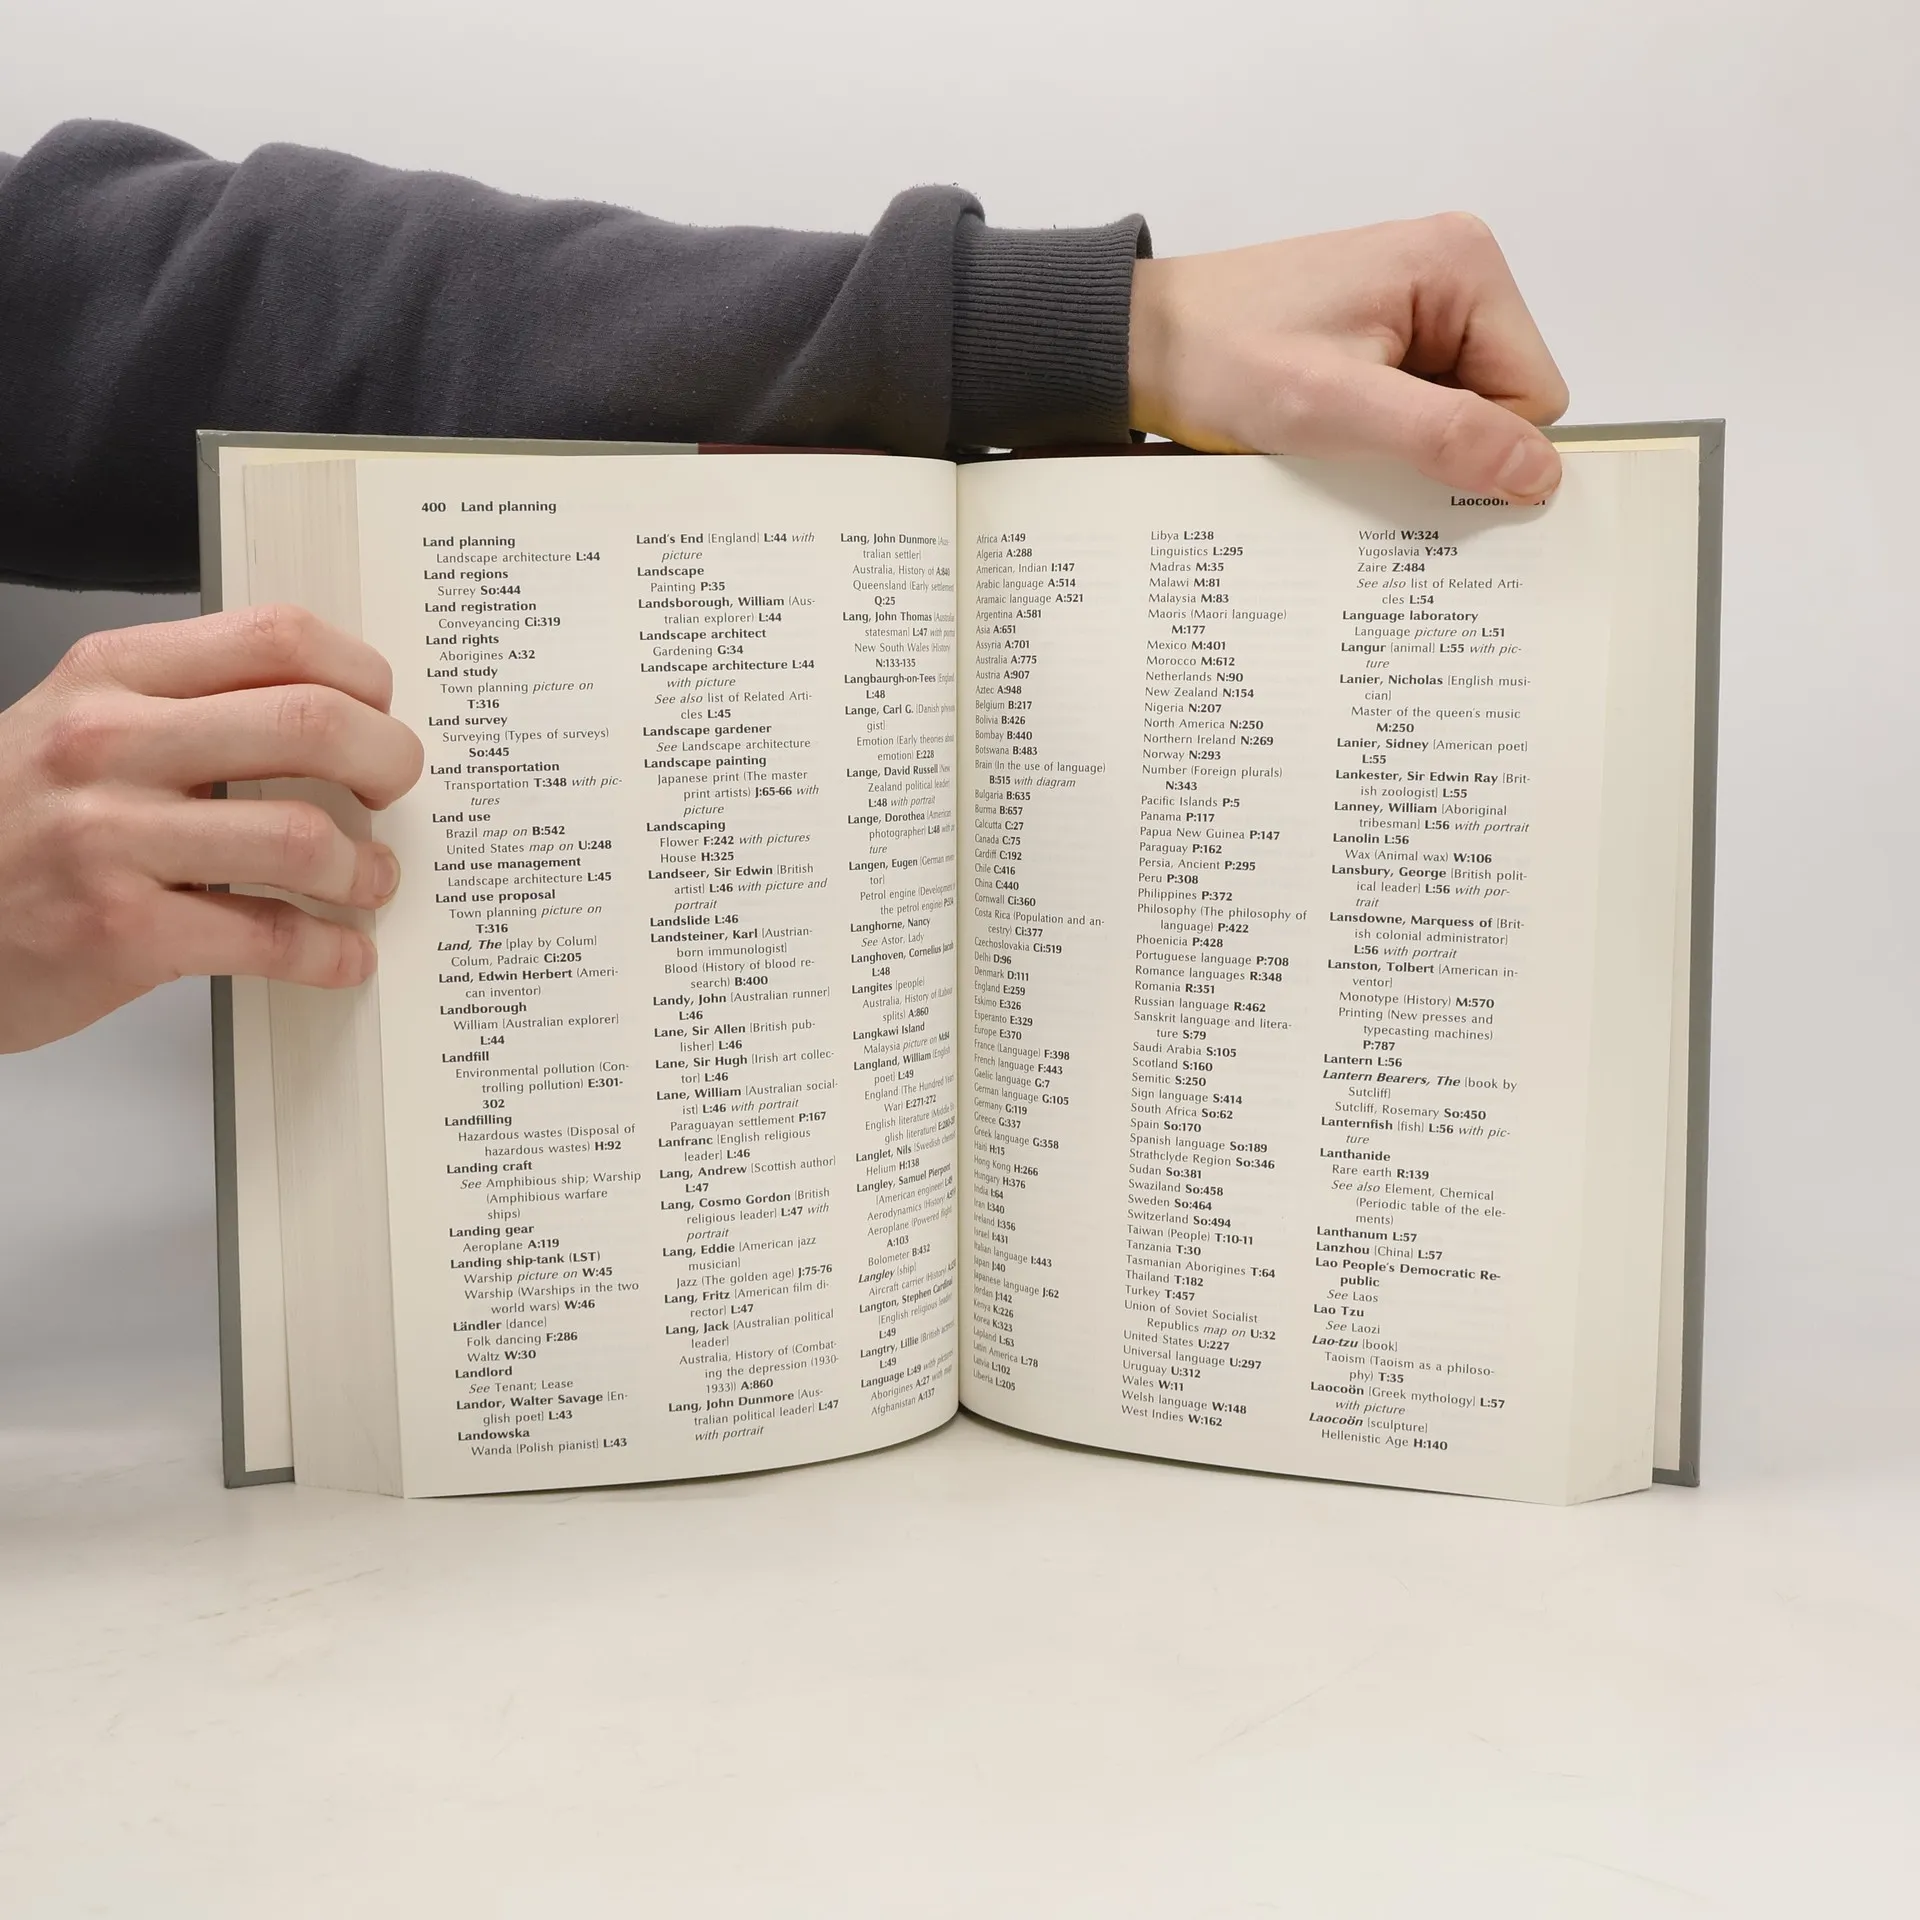 400 Land planning
Land planning
Landscape architecture L:44
Land regions
Surrey So:444
Land registration
Conveyancing Ci:319
Land rights
Aborigines A:32
Land study
Town planning picture on
T:316
Land survey
Surveying (Types of surveys)
So:445
Land transportation
Transportation T:348 with pic-
tures
Land use
Brazil map on B:542
United States map on U:248
Land use management
Landscape architecture L:45
Land use proposal
Town planning picture on
T:316
Land, The [play by Colum]
Colum, Padraic Ci:205
Land, Edwin Herbert [Ameri-
can inventor]
Landborough
William [Australian explorer]
L:44
Landfill
Environmental pollution (Con-
trolling pollution) E:301-
302
Landfilling
Hazardous wastes (Disposal of
hazardous wastes) H:92
Landing craft
See Amphibious ship; Warship
(Amphibious warfare
ships)
Landing gear
Aeroplane A:119
Landing ship-tank (LST)
Warship picture on W:45
Warship (Warships in the two
world wars) W:46
Ländler [dance]
Folk dancing F:286
Waltz W:30
Landlord
See Tenant; Lease
Landor, Walter Savage [En-
glish poet] L:43
Landowska
Wanda [Polish pianist] L:43
Land's End [England] L:44 with
picture
Landscape
Painting P:35
Landsborough, William [Aus-
tralian explorer] L:44
Landscape architect
Gardening G:34
Landscape architecture L:44
with picture
See also list of Related Arti-
cles L:45
Landscape gardener
See Landscape architecture
Landscape painting
Japanese print (The master
print artists) J:65-66 with
picture
Landscaping
Flower F:242 with pictures
House H:325
Landseer, Sir Edwin [British
artist] L:46 with picture and
portrait
Landslide L:46
Landsteiner, Karl [Austrian-
born immunologist]
Blood (History of blood re-
search) B:400
Landy, John [Australian runner]
L:46
Lane, Sir Allen [British pub-
lisher] L:46
Lane, Sir Hugh [Irish art collec-
tor] L:46
Lane, William [Australian social-
ist] L:46 with portrait
Paraguayan settlement P:167
Lanfranc [English religious
leader] L:46
Lang, Andrew [Scottish author]
L:47
Lang, Cosmo Gordon [British
religious leader] L:47 with
portrait
Lang, Eddie [American jazz
musician]
Jazz (The golden age) J:75-76
Lang, Fritz [American film di-
rector] L:47
Lang, Jack [Australian political
leader]
Australia, History of (Combat-
ing the depression (1930-
1933)) A:860
Lang, John Dunmore [Aus-
tralian political leader] L:47
with portrait
Lang, John Dunmore [Aus-
tralian settler]
Australia, History of A:840
Queensland (Early settlement)
Q:25
Lang, John Thomas [Australian
statesman] L:47 with
New South Wales (History)
N:133-135
Langbaurgh-on-Tees [England]
L:48
Lange, Carl G. [Danish
gist]
Emotion (Early theories about
emotion) E:228
Lange, David Russell [New
Zealand political leader]
L:48 with portrait
Lange, Dorothea [American
photographer] L:48 with
ture
Langen, Eugen [German inven-
tor]
Petrol engine (Development of
the petrol engine)
Langhorne, Nancy
See Astor, Lady
Langhoven, Cornelius Jacob
L:48
Langites [people]
Australia, History of (Labour
splits) A:860
Langkawi Island
Malaysia picture on M:84
Langland, William [English
poet] L:49
England (The Hundred Years'
War) E:271-272
English literature (Middle En-
glish literature)
Langlet, Nils [Swedish chemist]
Helium H:138
Langley, Samuel Pierpont
[American engineer] L:49
Aerodynamics (History)
Aeroplane (Powered flight)
A:103
Bolometer B:432
Langley [ship]
Aircraft carrier (History)
Langton, Stephen Cardinal
[English religious leader]
L:49
Langtry, Lillie [British actress]
L:49
Language L:49 with pictures
Aborigines A:27 with map
Afghanistan A:137
Laocoön
Africa A:149
Algeria A:288
American, Indian I:147
Arabic language A:514
Aramaic language A:521
Argentina A:581
Asia A:651
Assyria A:701
Australia A:775
Austria A:907
Aztec A:948
Belgium B:217
Bolivia B:426
Bombay B:440
Botswana B:483
Brain (In the use of language)
B:515 with diagram
Bulgaria B:635
Burma B:657
Calcutta C:27
Canada C:75
Cardiff C:192
Chile C:416
China C:440
Cornwall Ci:360
Costa Rica (Population and an-
cestry) Ci:377
Czechoslovakia Ci:519
Delhi D:96
Denmark D:111
England E:259
Eskimo E:326
Esperanto E:329
Europe E:370
France (Language) F:398
French language F:443
Gaelic language G:7
German language G:105
Germany G:119
Greece G:337
Greek language G:358
Haiti H:15
Hong Kong H:266
Hungary H:376
India I:64
Iran I:340
Ireland I:356
Israel I:431
Italian language I:443
Japan J:40
Japanese language J:62
Jordan J:142
Kenya K:226
Korea K:323
Lapland L:63
Latin America L:78
Latvia L:102
Liberia L:205
Libya L:238
Linguistics L:295
Madras M:35
Malawi M:81
Malaysia M:83
Maoris (Maori language)
M:177
Mexico M:401
Morocco M:612
Netherlands N:90
New Zealand N:154
Nigeria N:207
North America N:250
Northern Ireland N:269
Norway N:293
Number (Foreign plurals)
N:343
Pacific Islands P:5
Panama P:117
Papua New Guinea P:147
Paraguay P:162
Persia, Ancient P:295
Peru P:308
Philippines P:372
Philosophy (The philosophy of
language) P:422
Phoenicia P:428
Portuguese language P:708
Romance languages R:348
Romania R:351
Russian language R:462
Sanskrit language and litera-
ture S:79
Saudi Arabia S:105
Scotland S:160
Semitic S:250
Sign language S:414
South Africa So:62
Spain So:170
Spanish language So:189
Strathclyde Region So:346
Sudan So:381
Swaziland So:458
Sweden So:464
Switzerland So:494
Taiwan (People) T:10-11
Tanzania T:30
Tasmanian Aborigines T:64
Thailand T:182
Turkey T:457
Union of Soviet Socialist
Republics map on U:32
United States U:227
Universal language U:297
Uruguay U:312
Wales W:11
Welsh language W:148
West Indies W:162
World W:324
Yugoslavia Y:473
Zaire Z:484
See also list of Related Arti-
cles L:54
Language laboratory
Language picture on L:51
Langur [animal] L:55 with pic-
ture
Lanier, Nicholas [English musi-
cian]
Master of the queen's music
M:250
Lanier, Sidney [American poet]
L:55
Lankester, Sir Edwin Ray [Brit-
ish zoologist] L:55
Lanney, William [Aboriginal
tribesman] L:56 with portrait
Lanolin L:56
Wax (Animal wax) W:106
Lansbury, George [British polit-
ical leader] L:56 with por-
trait
Lansdowne, Marquess of [Brit-
ish colonial administrator]
L:56 with portrait
Lanston, Tolbert [American in-
ventor]
Monotype (History) M:570
Printing (New presses and
typecasting machines)
P:787
Lantern L:56
Lantern Bearers, The [book by
Sutcliff]
Sutcliff, Rosemary So:450
Lanternfish [fish] L:56 with pic-
ture
Lanthanide
Rare earth R:139
See also Element, Chemical
(Periodic table of the ele-
ments)
Lanthanum L:57
Lanzhou [China] L:57
Lao People's Democratic Re-
public
See Laos
Lao Tzu
See Laozi
Lao-tzu [book]
Taoism (Taoism as a philoso-
phy) T:35
Laocoön [Greek mythology] L:57
with picture
Laocoön [sculpture]
Hellenistic Age H:140